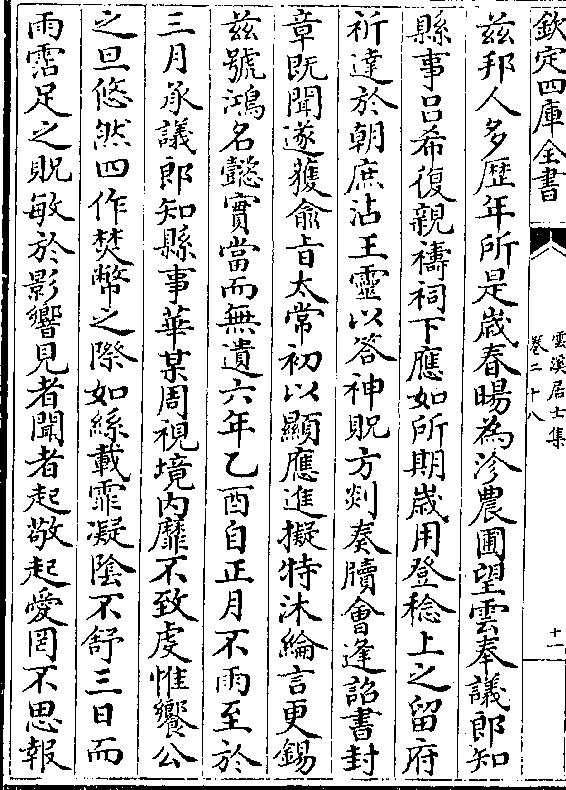 欽定四庫全書
雲溪居士集
卷二十八
十一
兹邦人多歴年所是嵗春暘為沴農圃望雲奉議郎知
縣事吕希復親禱祠下應如所期嵗用登稔上之留府
祈達於朝庶沾王靈以答神貺方剡奏牘會逢詔書封
章既聞遂獲俞㫖太常初以顯應進擬特沐綸言更錫
兹號鴻名懿實當而無遺六年乙酉自正月不雨至於
三月承議郎知縣事華某周視境内靡不致䖍惟饗公
之旦悠然四作焚幣之際如絲載霏凝陰不舒三日而
雨霑足之貺敏於影響見者聞者起敬起愛罔不思報